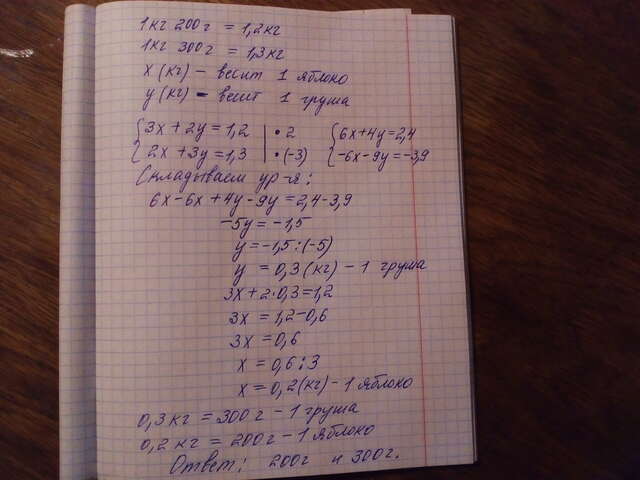 1кг 200г = 1,2кг
1кг 300г = 1,3кг
х (кг) – весит 1 яблоко
у (кг) – весит 1 груша
{3х + 2у = 1,2 | • 2 {6х+4у=2,4
{2х + 3у = 1,3 | • (-3) {-6х-9у=-3,9
Складываем ур-я:
6х-6х+4у-9у=2,4-3,9
-5у=-1,5
у=-1,5:(-5)
у = 0,3(кг) – 1 груша
3х+2•0,3=1,2
3х = 1,2-0,6
3х = 0,6
х = 0,6:3
х = 0,2(кг) – 1 яблоко
0,3кг = 300г – 1 груша
0,2кг = 200г – 1 яблоко
Ответ: 200г и 300г.